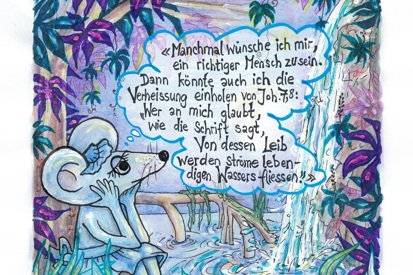 «Manchmal wünsche ich mir,
ein richtiger Mensch zu sein.
Dann könnte auch ich die
Verheissung einholen von Joh. 7,8:
"Wer an mich glaubt,
wie die Schrift sagt,
Von dessen Leib
werden ströme leben-
digen Wassers fliessen"»